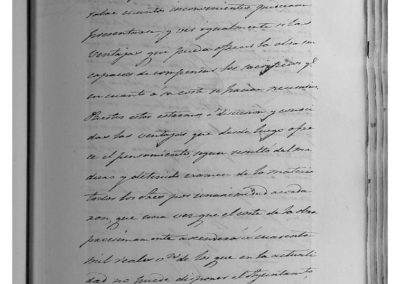 sobre cuantos inconvenientes pudieran
presentar, y ver igualmente si las
ventajas que pueda ofrecer la obra son
capaces de compensar los sacrificios qe
en cuanto a su coste se hacian necesarios.
Puestos estos estremos á discusion y conoci
das las ventajas que desde luego ofre
ce el pensamiento, segun resulta del ma
duro y detenido examen de la materia
todos los Sres por unanimidad acorda
ron, que una vez que el coste de la obra
procsimamente ascenderá á cuarenta
mil reales vn de los que en la actuali
dad no puede disponer el Ayuntamto